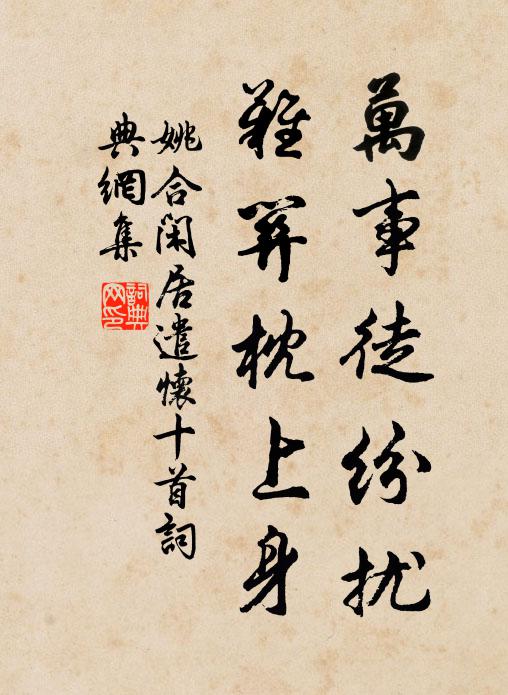 萬事徒紛擾
難關枕上身
姚合閑居遣懷十首詞
典網集
詞典
网印